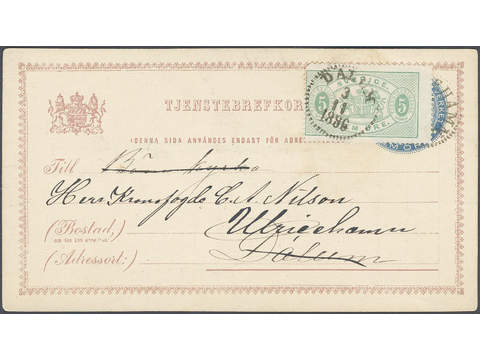 TJENSTEBREFKORT
(DENNA SIDA ANVÄNDES ENDAST FÖR ADRE
5 5
ÖRE.
DAL
3
11
1886
HAM
Till
Herr Kronofogde C. A. Nilson
(Bostad,)
Ulricehamn
(Adressort:)
Dalum